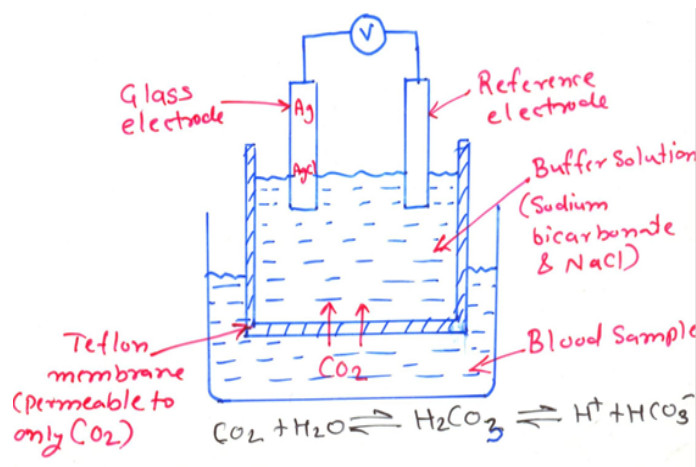 V
Glass
electrode
Ag
AgCl
Reference
electrode
Buffer Solution
(Sodium
bicarbonate
& NaCl)
Teflon
membrane
(permeable to
only CO2)
CO2
Blood Sample
CO2 + H2O ⇌ H2CO3 ⇌ H+ + HCO3-